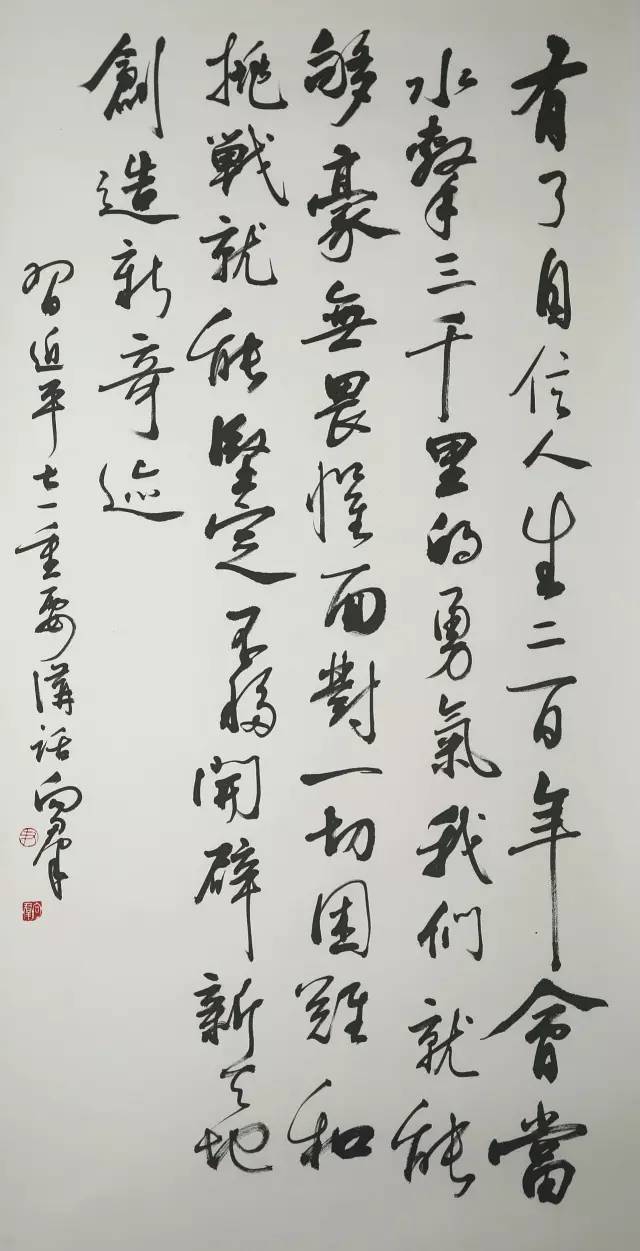 有了自信人生二百年會當
水擊三千里的勇氣我们就能
够豪無畏懼面對一切困難和
挑戰就能堅定不移開辟新天地
創造新奇迹
習近平七一重要講話向羣